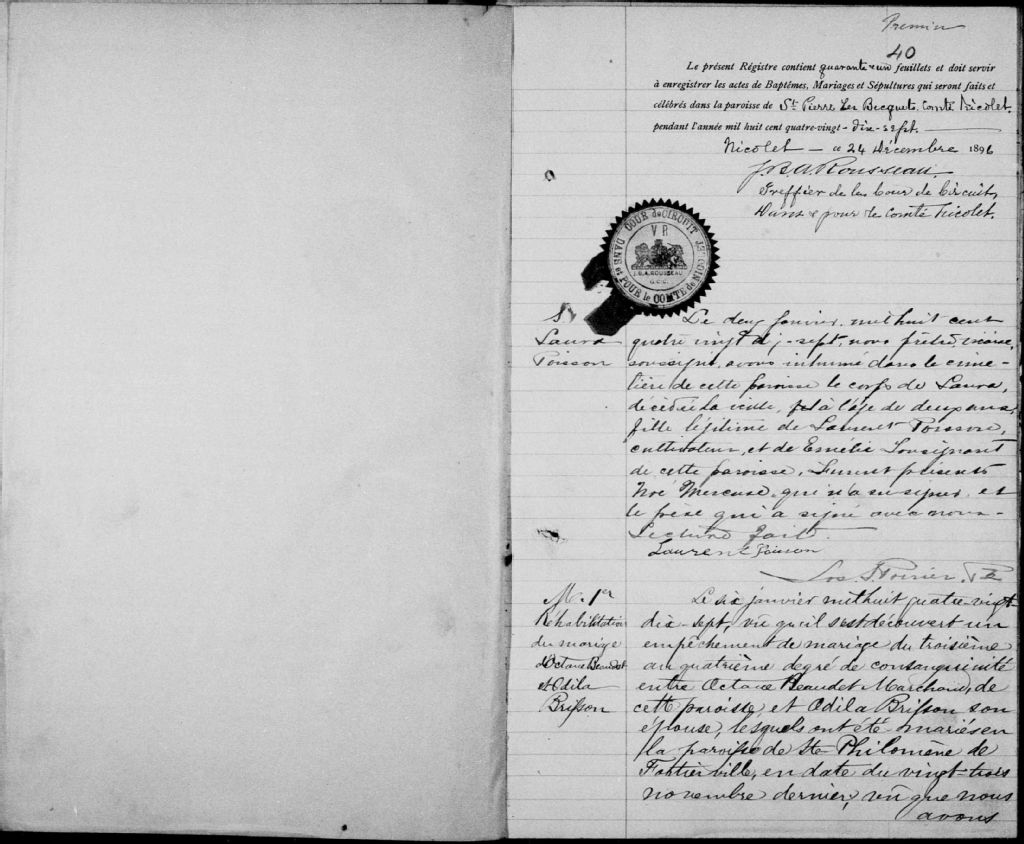 Premier
40
Le présent Régistre contient quarante-un feuillets et doit servir
à enregistrer les actes de Baptêmes, Mariages et Sépultures qui seront faits et
célébrés dans la paroisse de St Pierre Les Becquets, Comté Nicolet.
pendant l'année mil huit cent quatre-vingt-dix-sept.
Nicolet — ce 24 Décembre 1896
J.B.A. Rousseau
Greffier de la Cour de Circuit,
Dans & pour le Comté Nicolet.
COUR de CIRCUIT
DANS et POUR le COMTE de NICOLET
V R
J.B.A. ROUSSEAU
G.C.C.
S
Laura
Poisson
Le deux janvier mil huit cent
quatre vingt dix-sept, nous prêtre, vicaire,
soussigné, avons inhumé dans le cime-
tière de cette paroisse le corps de Laura,
décédée la veille, à l'âge de deux ans,
fille légitime de Laurent Poisson,
cultivateur, et de Emélie Lousignant
de cette paroisse. Furent présents
Noé Mercure, qui n'a su signer, et
le père qui a signé avec nous.
Lecture faite.
Laurent Poisson
Jos. Poirier, Ptre
M. 1er
Réhabilitation
du mariage
d'Octave Beaudet
et Odila
Brisson
Le six janvier mil huit quatre-vingt-
dix-sept, vu qu'il s'est découvert un
empêchement de mariage du troisième
au quatrième degré de consanguinité
entre Octave Beaudet Marchand, de
cette paroisse, et Odila Brisson son
épouse, lesquels ont été mariés en
la paroisse de Ste Philomène de
Fortierville, en date du vingt-trois
novembre dernier, vu que nous
avons